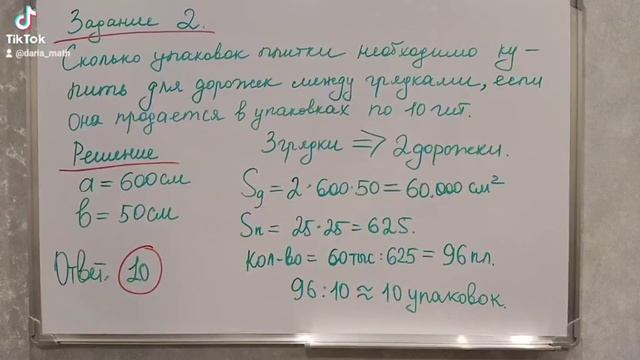 TikTok
@daria_math
Задание 2.
Сколько упаковок плитки необходимо ку-
пить для дорожек между грядками, если
она продается в упаковках по 10 шт.
Решение
3 грядки ⇒ 2 дорожки.
a = 600 см
Sд = 2 · 600 · 50 = 60.000 см²
b = 50 см
Sп = 25 · 25 = 625.
кол-во = 60 тыс : 625 = 96 пл.
Ответ. 10
96 : 10 ≈ 10 упаковок.